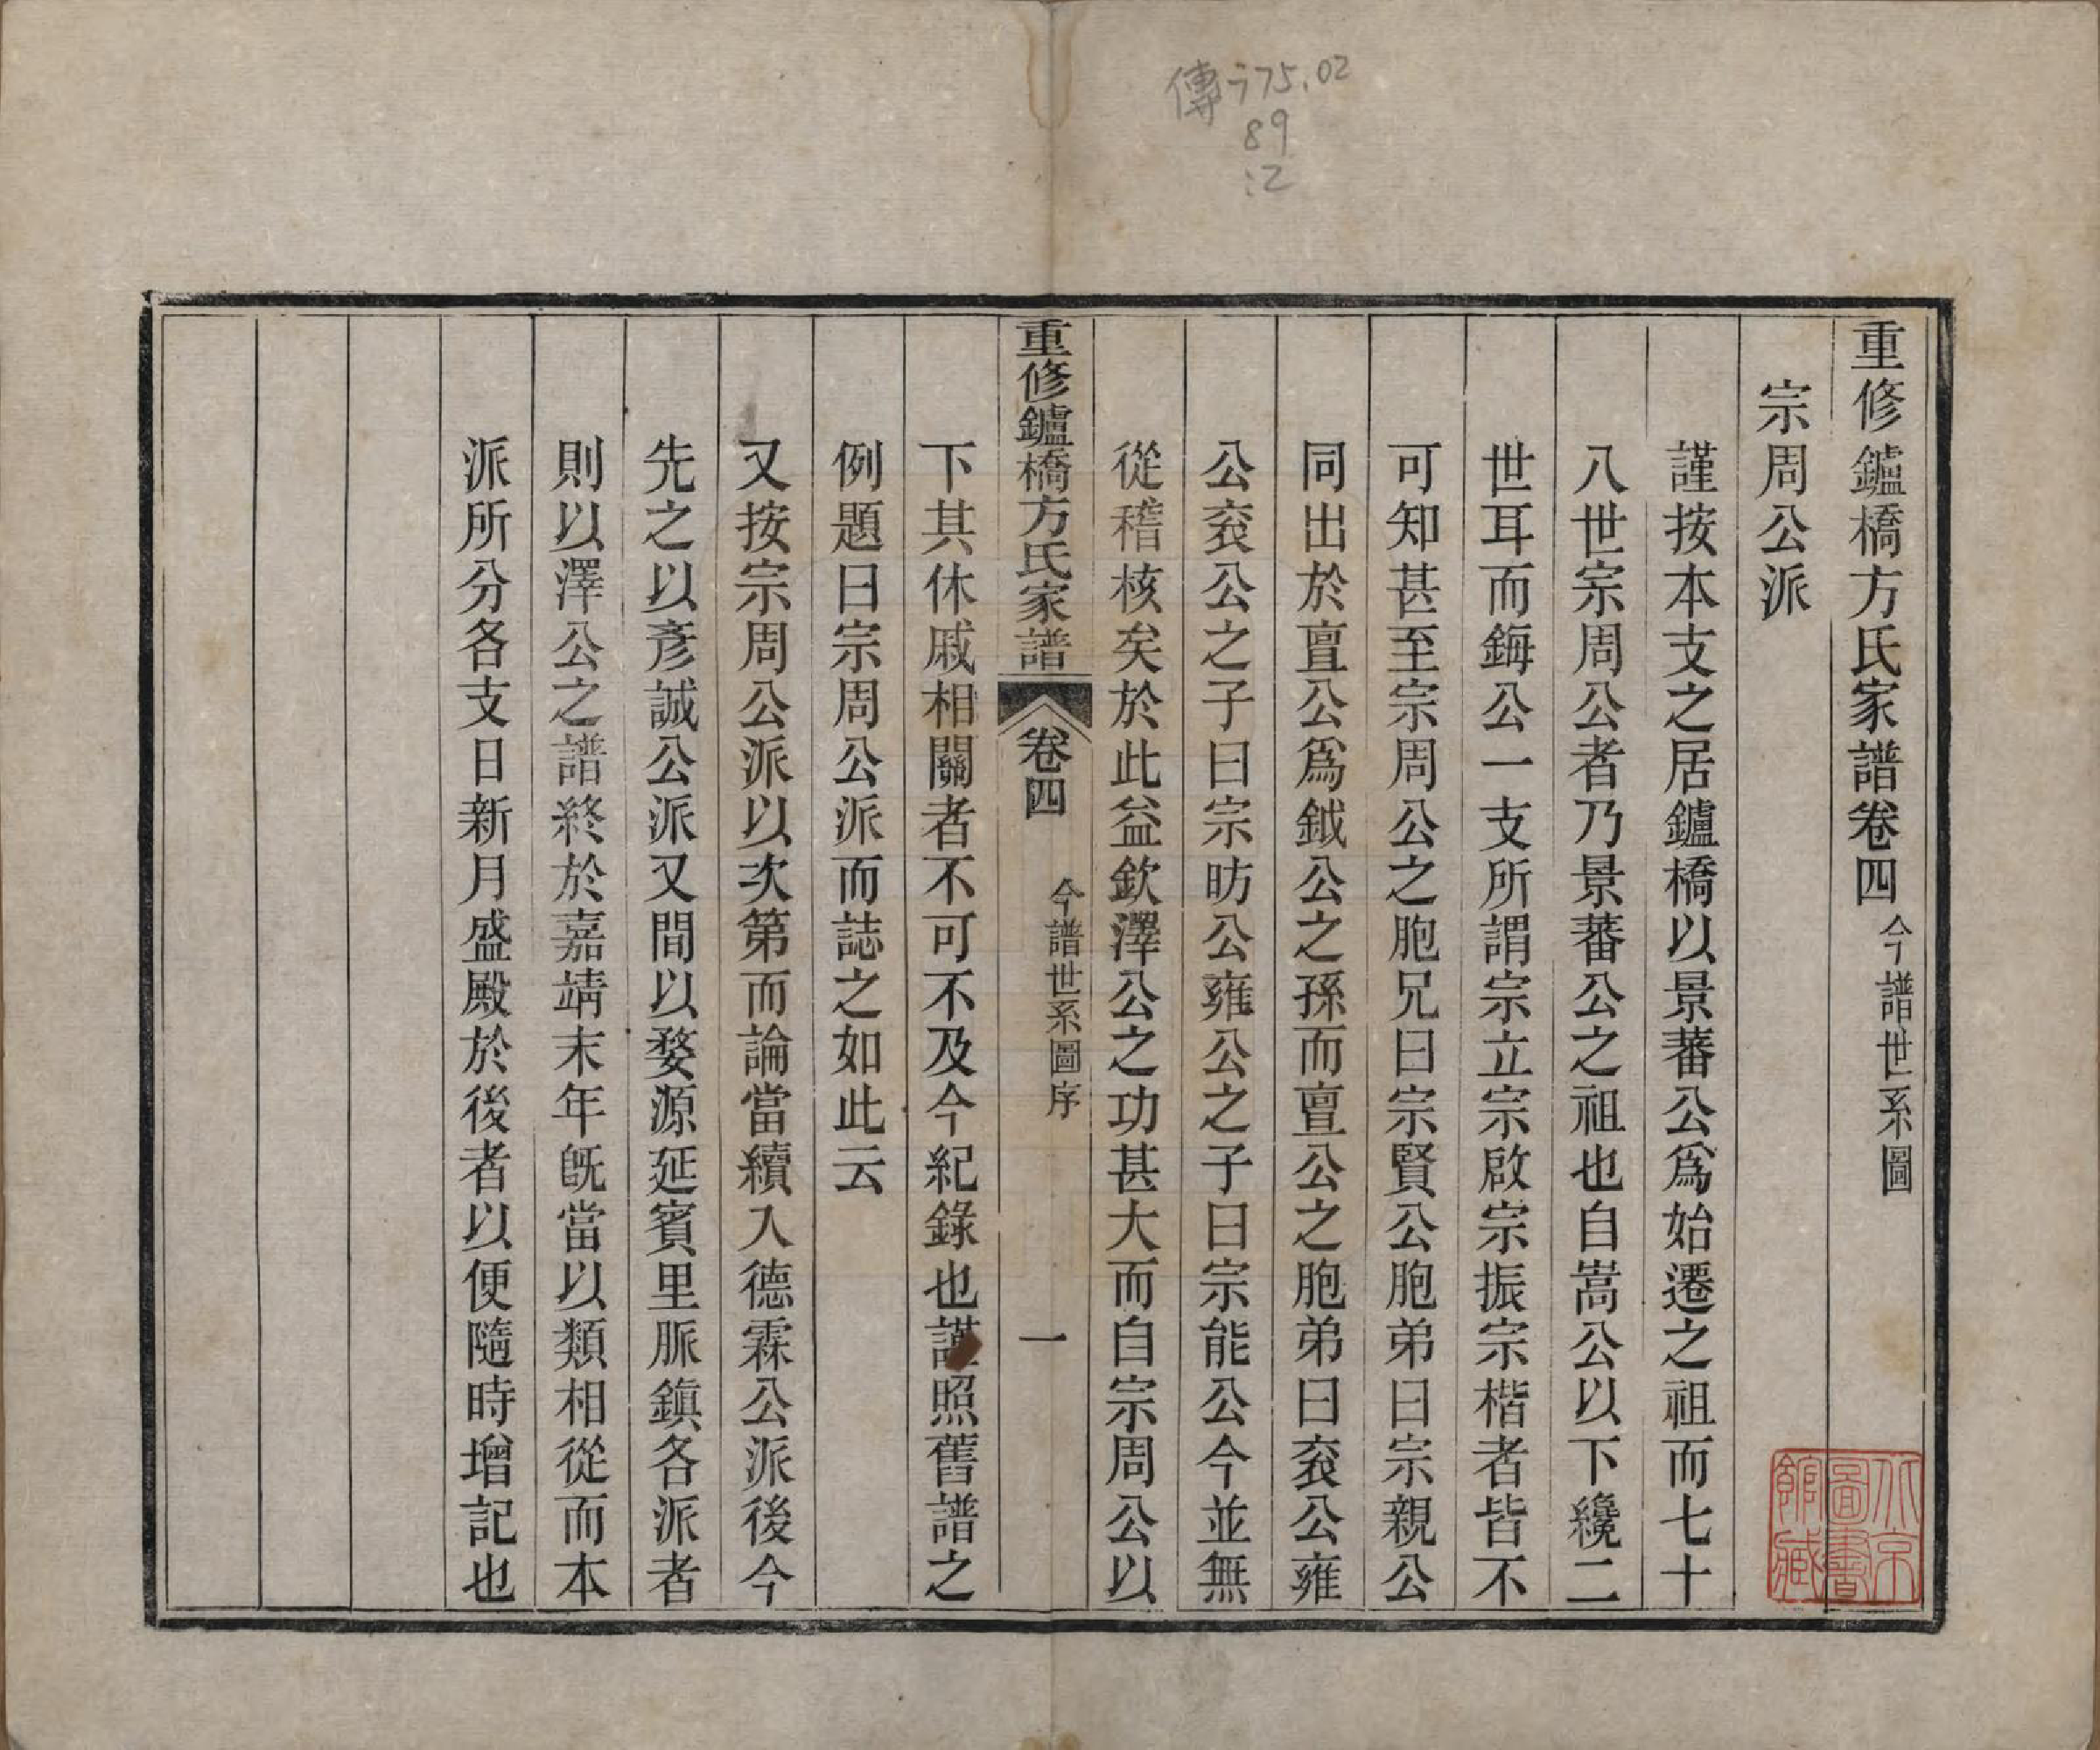 傳775.02
89
:2
重修鑪橋方氏家譜卷四 今譜世系圖
宗周公派
謹按本支之居鑪橋以景蕃公爲始遷之祖而七十
八世宗周公者乃景蕃公之祖也自嵩公以下纔二
世耳而鋂公一支所謂宗立宗啟宗振宗楷者皆不
可知甚至宗周公之胞兄曰宗賢公胞弟曰宗親公
同出於亶公爲鉞公之孫而亶公之胞弟曰兖公雍
公兖公之子曰宗昉公雍公之子曰宗能公今並無
從稽核矣於此益欽澤公之功甚大而自宗周公以
重修鑪橋方氏家譜 卷四 今譜世系圖序 一
下其休戚相關者不可不及今紀錄也謹照舊譜之
例題曰宗周公派而誌之如此云
又按宗周公派以次第而論當續入德霖公派後今
先之以彥誠公派又間以婺源延賓里脈鎮各派者
則以澤公之譜終於嘉靖末年旣當以類相從而本
派所分各支日新月盛殿於後者以便隨時增記也
北京圖書館藏